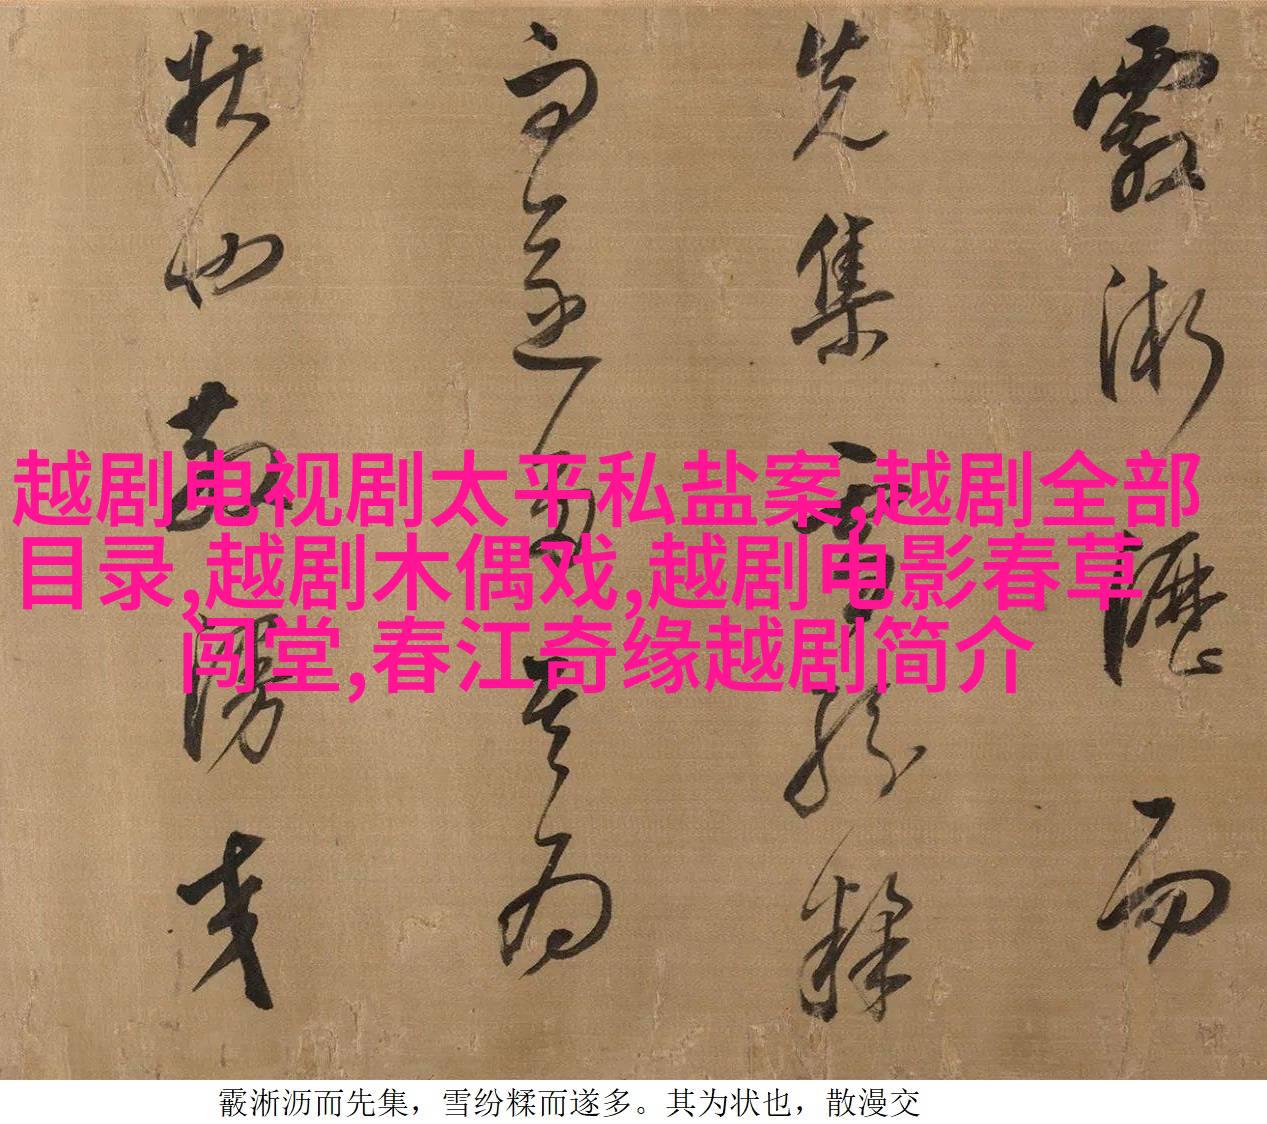 霰淅瀝而
先集雪紛糅
而遂多其為
狀也散漫交
越剧电视剧太平私盐案,越剧全部
目录,越剧木偶戏,越剧电影春草
闯堂,春江奇缘越剧简介
霰淅沥而先集，雪纷糅而遂多。其为状也，散漫交